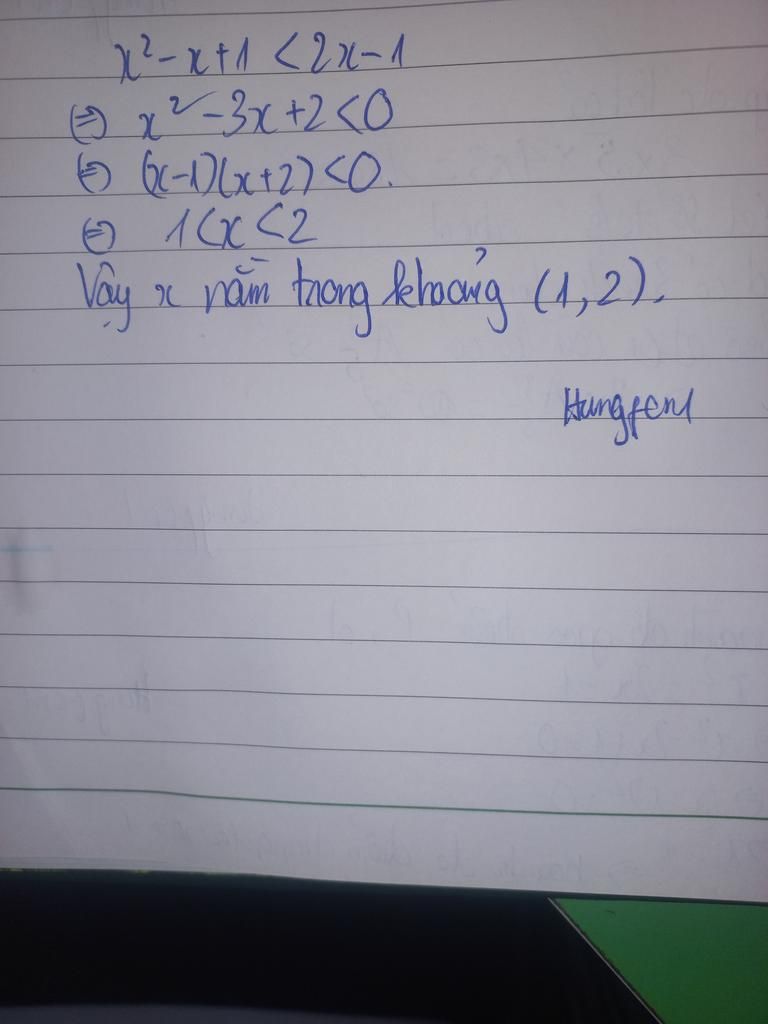 x² - x + 1 < 2x - 1
⇔ x² - 3x + 2 < 0
⇔ (x-1)(x+2) < 0.
⇔ 1 < x < 2
Vậy x nằm trong khoảng (1, 2).